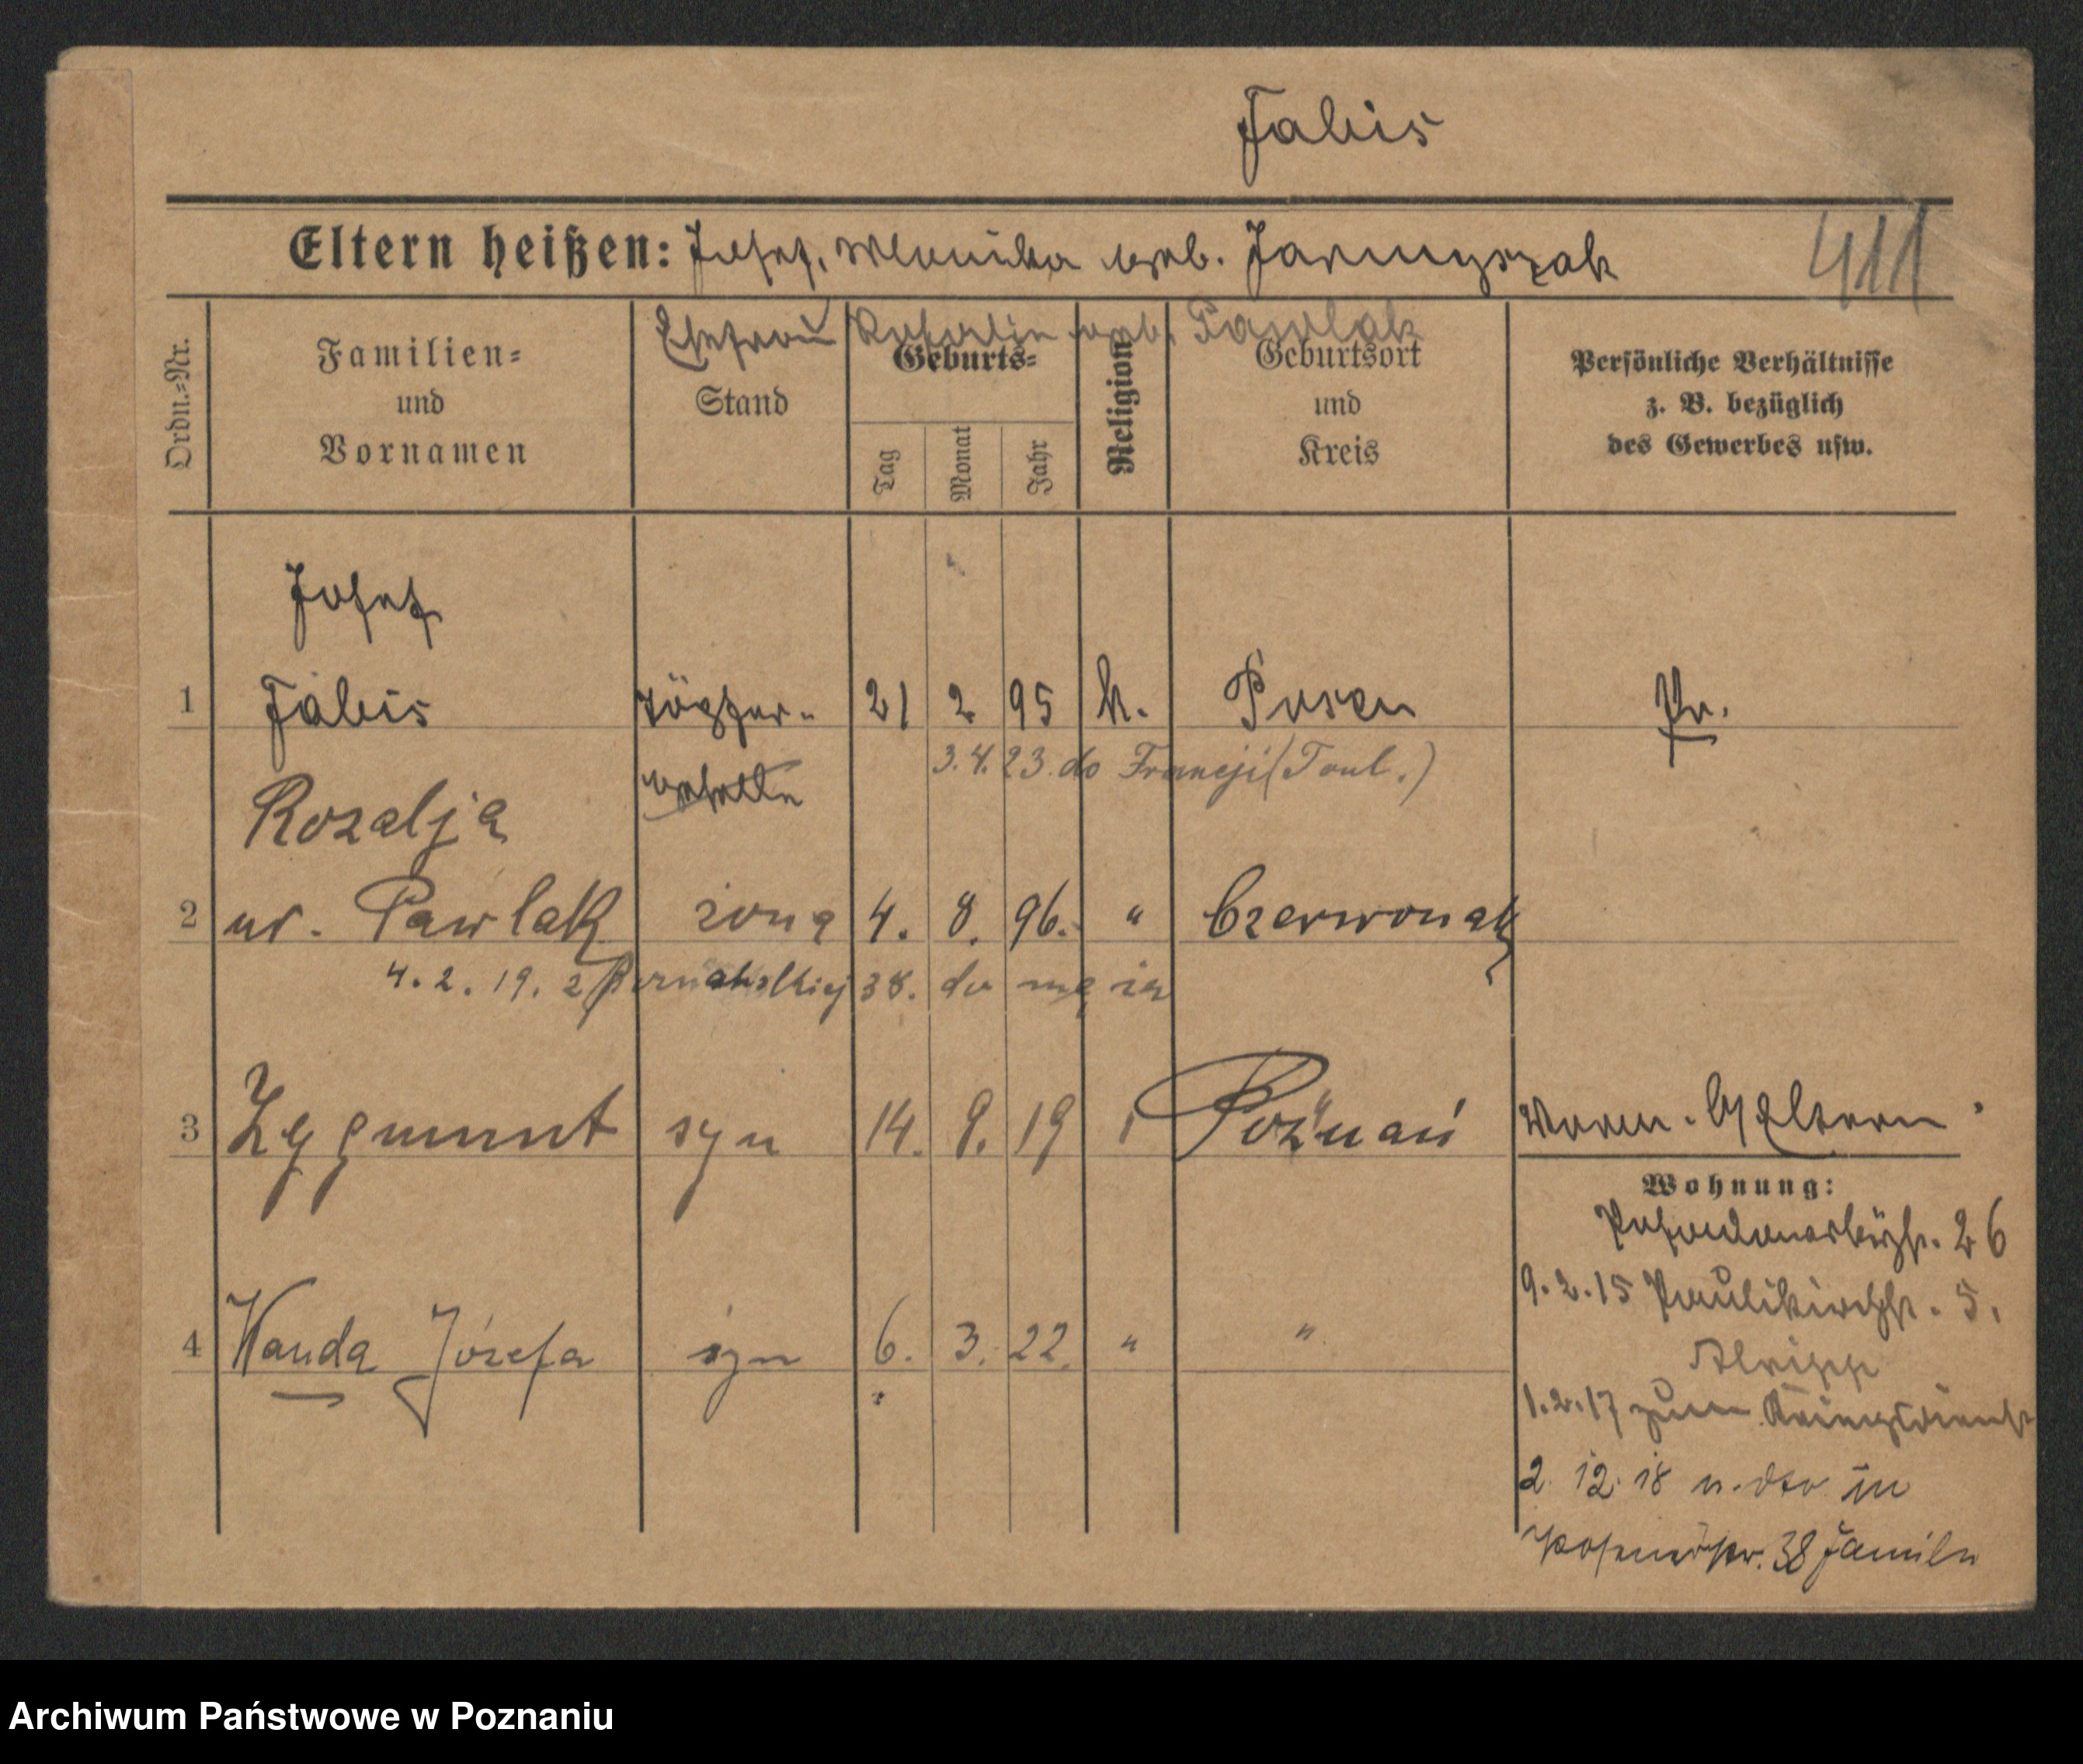 Fabis
Eltern heißen: Josef, Monika geb. Jarmyszak
411
Ehefrau Rosalie geb. Pawlak
Ordn.-Nr.
Familien-
und
Vornamen
Stand
Geburts-
Tag
Monat
Jahr
Religion
Geburtsort
und
Kreis
Persönliche Verhältnisse
z. B. bezüglich
des Gewerbes usw.
Josef
1 Fabis Töpfer- 21 2 95 k. Posen Pr.
geselle
3.4.23. do Francji (Toul.)
Rozalja
2 ur. Pawlak żona 4. 8. 96. " Czerwonak
4. 2. 19. z 38. do męża
3 Zygmunt syn 14. 9. 19 " Poznań
Eltern
Wohnung:
26
9.2.15 Paulikirchstr. 5.
4 Wanda Józefa syn 6. 3. 22. " "
1.2.17 zum
2. 12. 18 in
38 Familie
Archiwum Państwowe w Poznaniu